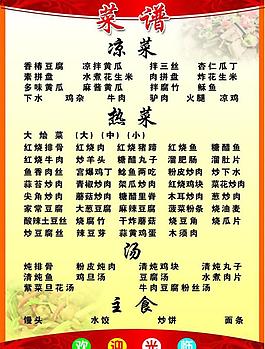 菜谱
凉菜
香椿豆腐 凉拌黄瓜 拌三丝 杏仁瓜丁
素拼盘 水煮花生米 肉拼盘 炸花生米
多味黄瓜 麻酱黄瓜 拌腐竹 酥鱼
下水 鸡杂 牛肉 驴肉 火腿 凉鸡
热菜
大烩菜 (大) (中) (小)
红烧排骨 红烧肉 红烧猪蹄 红烧鱼 糖醋鱼
红烧牛肉 炒羊头 糖醋丸子 溜肥肠 溜肚片
鱼香肉丝 宫爆鸡丁 鲶鱼两吃 炒粉皮 炒豆芽
蒜苔炒肉 青椒炒肉 茶瓜炒肉 红烧鸡块 菜花炒肉
尖角炒肉 蘑菇炒肉 糖醋里脊 木耳炒肉 葱炒肉
家常豆腐 大葱豆腐 麻辣豆腐 菠菜粉条 烧油麦
酸辣土豆丝 烧腐竹 干炸蘑菇 烧豆角 烧茄子
红烧土豆 辣豆芽 蒜黄鸡蛋 木须肉
汤
炖排骨 粉皮炖肉 清炖鸡块 清炖丸子
清炖鱼 鸡旦汤 豆腐汤 水煮肉片
紫菜旦花汤 牛肉豆腐粉丝汤
主食
馒头 水饺 炒饼 面条
欢迎光临